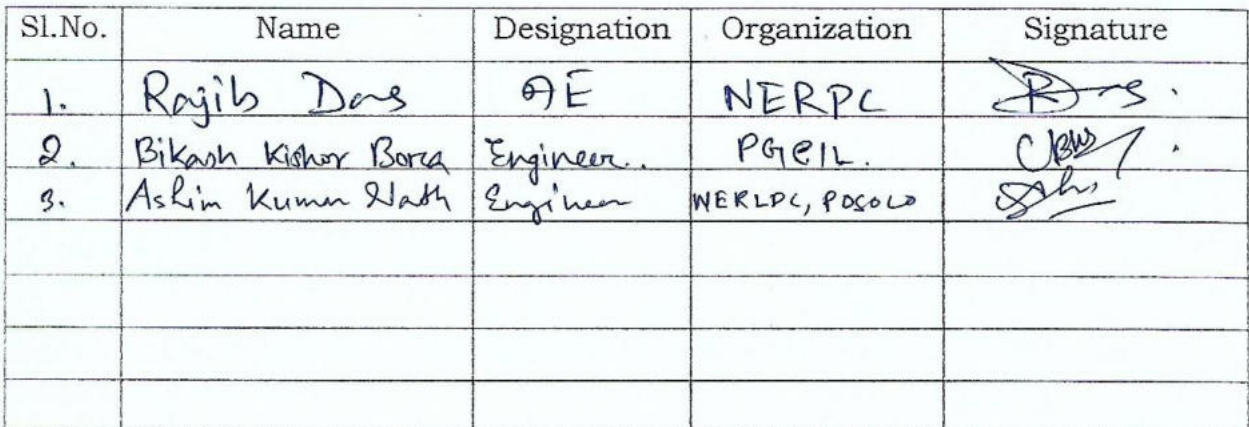 Sl.No. Name Designation Organization Signature
1. Rajib Das AE NERPC
2. Bikash Kishor Bora Engineer. PGCIL.
3. Ashim Kumar Nath Engineer NERLDC, POSOCO